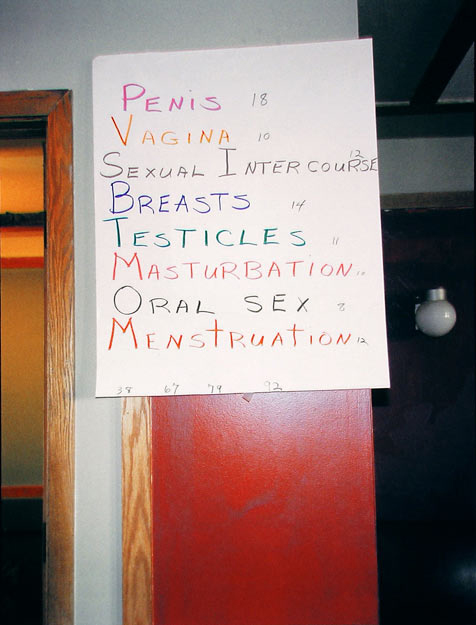 PENIS 18
VAGINA 10
SEXUAL INTERCOURSE 12
BREASTS 14
TESTICLES 11
MASTURBATION 10
ORAL SEX 8
MENSTRUATION 12
38 67 79 92